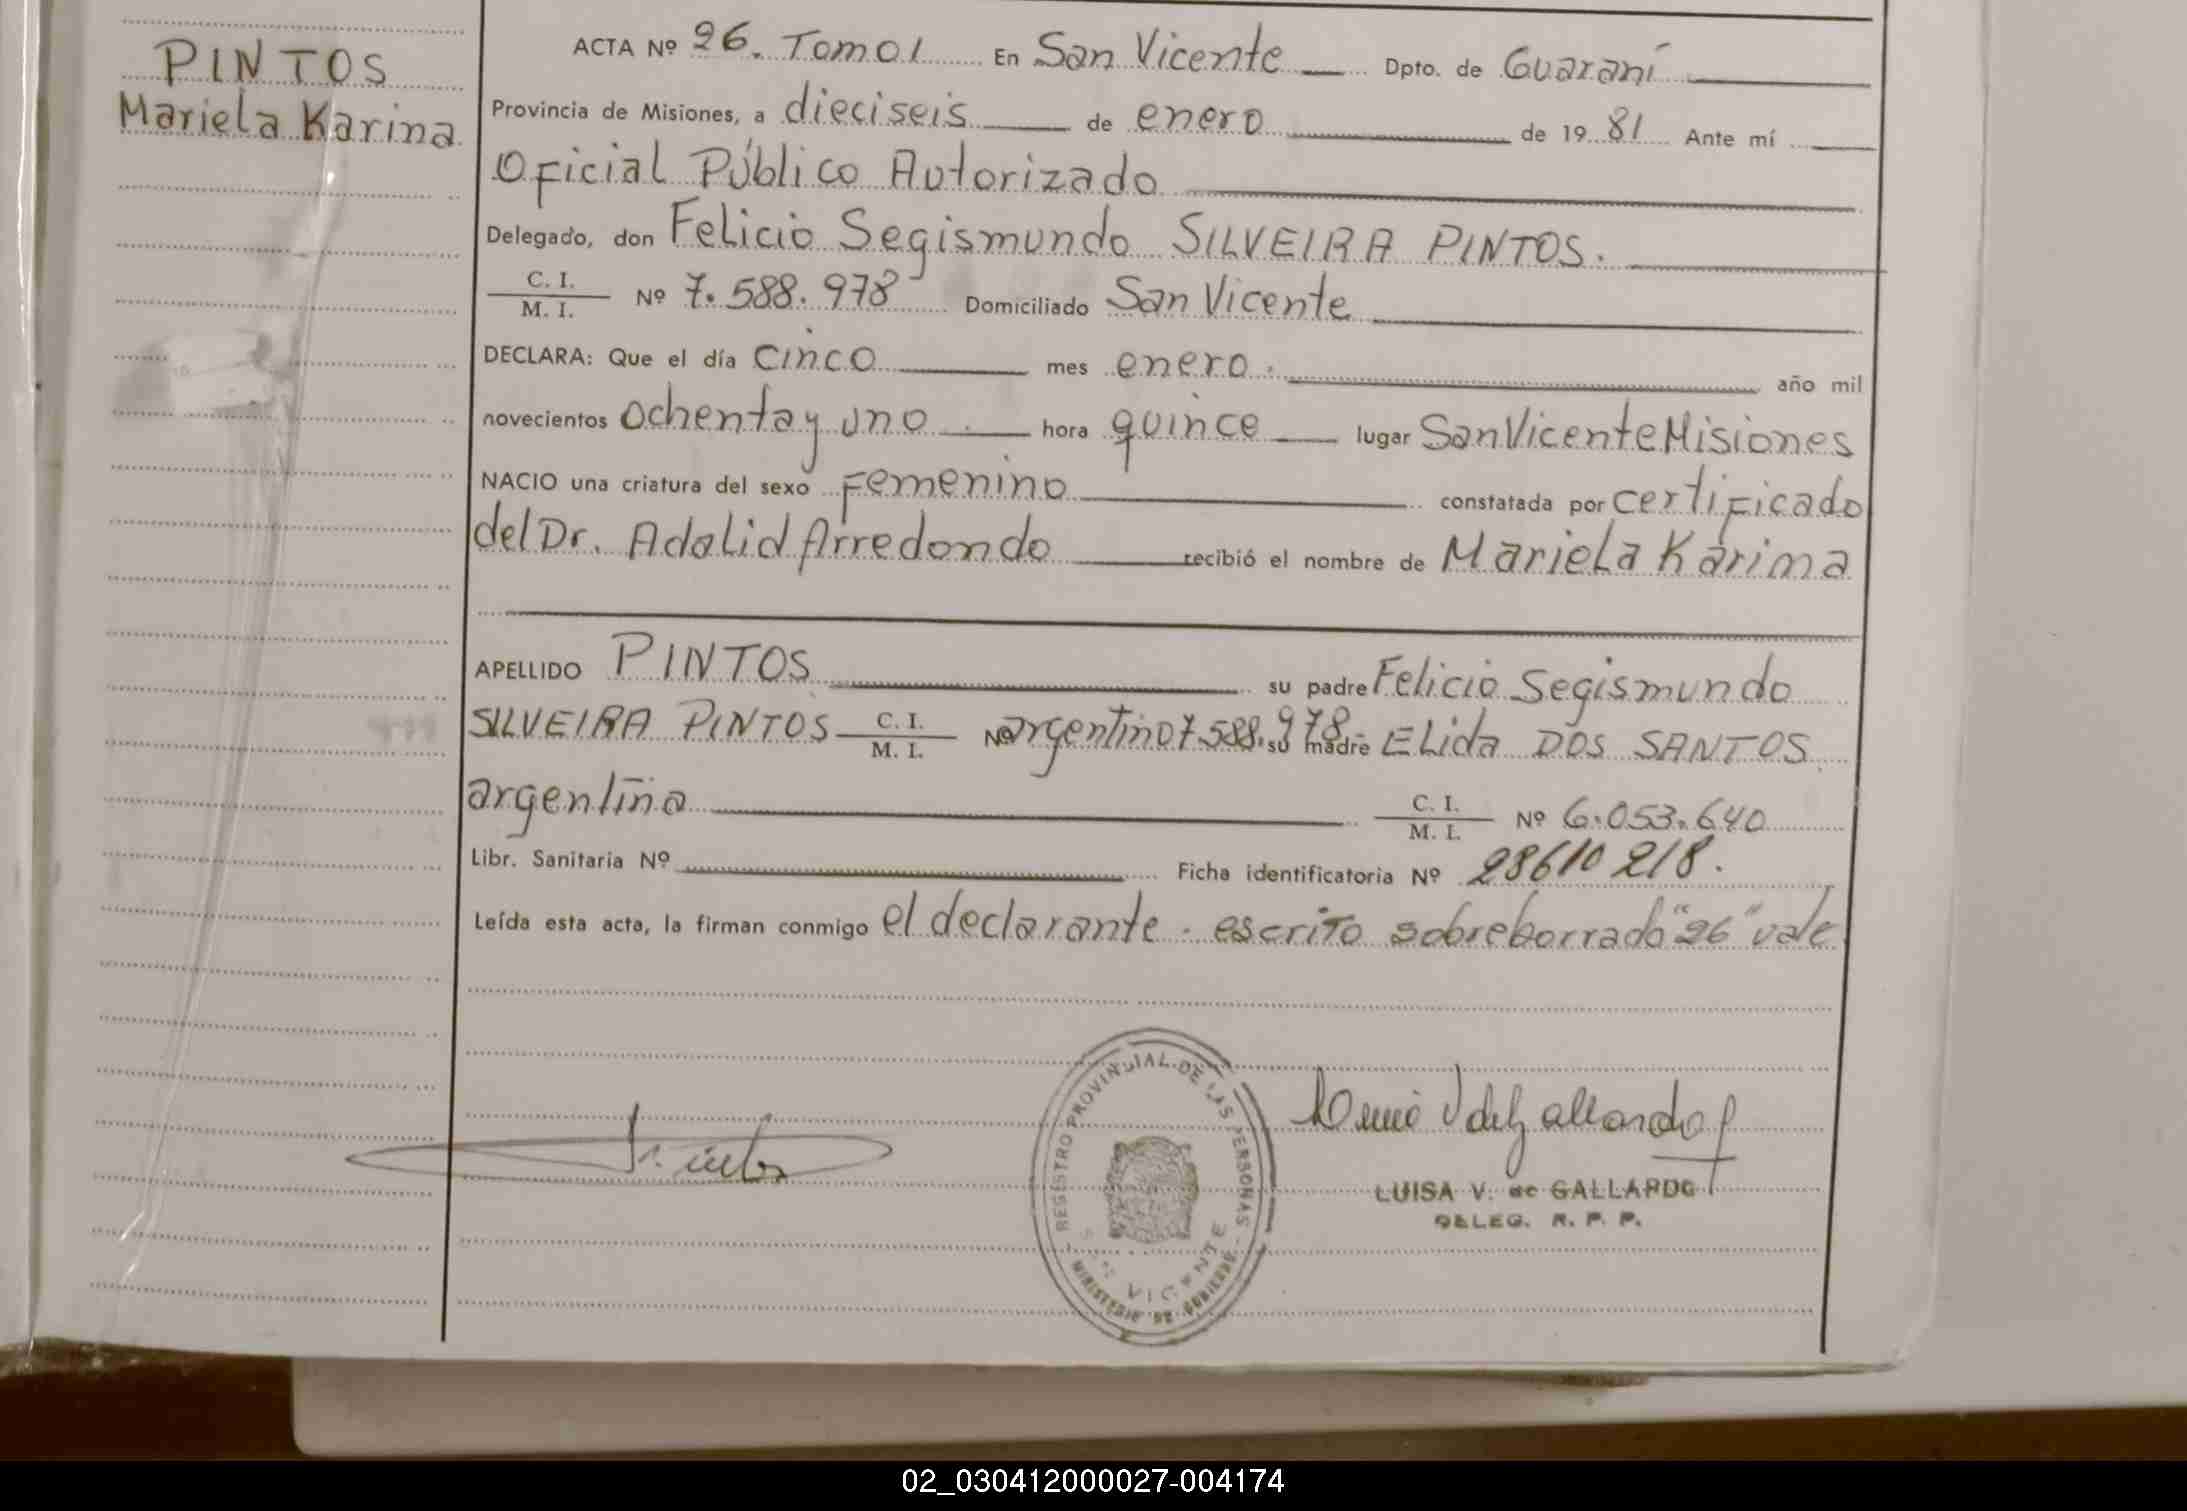 PINTOS
Mariela Karina
ACTA Nº 26. Tomo 1 En San Vicente Dpto. de Guaraní
Provincia de Misiones, a dieciseis de enero de 19 81 Ante mí
Oficial Público Autorizado
Delegado, don Felicio Segismundo SILVEIRA PINTOS.
C. I.
M. I. Nº 7.588.978 Domiciliado San Vicente
DECLARA: Que el día cinco mes enero. año mil
novecientos ochenta y uno. hora quince lugar San Vicente Misiones
NACIO una criatura del sexo Femenino constatada por certificado
del Dr. Adalid Arredondo recibió el nombre de Mariela Karima
APELLIDO PINTOS su padre Felicio Segismundo
SILVEIRA PINTOS C. I.
M. I. Nº argentino 7.588.978 su madre ELida DOS SANTOS
argentina C. I.
M. I. Nº 6.053.640
Libr. Sanitaria Nº Ficha identificatoria Nº 28610218.
Leída esta acta, la firman conmigo el declarante. escrito sobreborrado "26" vale
REGISTRO PROVINCIAL DE LAS PERSONAS
SAN VICENTE
MINISTERIO DE GOBIERNO
LUISA V. de GALLARDO
DELEG. R. P. P.
02_030412000027-004174